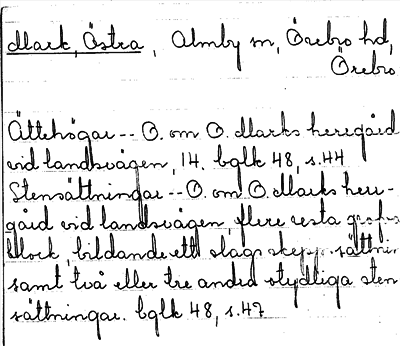 Mark, Östra, Almby sn, Örebro hd,
Örebro
Ättehögar -- O. om O. Marks herregård
vid landsvägen, 14. bglk 48, s. 44
Stensättningar -- O. om O. Marks herre-
gård vid landsvägen, flere resta
block, bildande ett slags skepps-sättnin
samt två eller tre andra otydliga sten
sättningar. bglk 48, s. 47